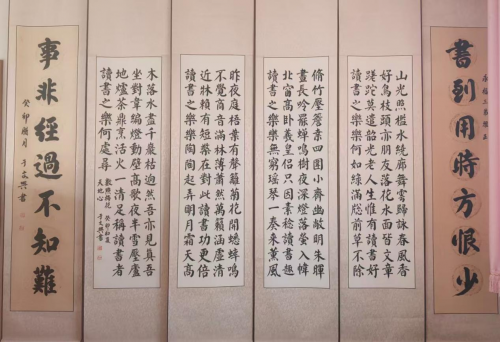 書到用時方恨少
山光照檻水繞廊舞雩歸詠春風香
好鳥枝頭亦朋友落花水面皆文章
蹉跎莫遣韶光老人生惟有讀書好
讀書之樂樂何如綠滿窓前草不除
脩竹壓簷桑四圍小齋幽敞明朱暉
晝長吟罷蟬鳴樹夜深燈落螢入幃
北窗高卧羲皇侣只因素稔讀書趣
讀書之樂樂無窮瑶琴一奏来薰風
昨夜庭梧葉有聲籬菊花開蟋蟀鳴
不覺商音滿林薄蕭然萬籟涵虛清
近牀賴有短檠在對此讀書功更倍
讀書之樂樂陶陶起弄明月霜天高
木落水盡千巖枯迥然吾亦見真吾
坐對韋編燈動壁高歌夜半雪壓廬
地爐茶鼎烹活火一清足稱讀書者
讀書之樂何處尋
數點梅花
天地心
事非經過不知難